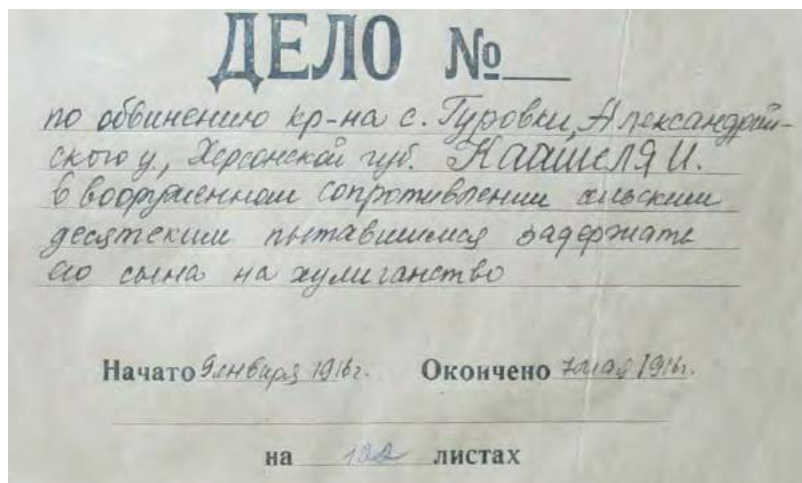 ДЕЛО №
по обвинению кр-на с. Гуровки, Александрий-
ского у., Херсонской губ. И.
в вооруженном сопротивлении сельским
десятским пытавшимся задержать
его сына на хулиганство
Начато 9 января 1916г. Окончено 7 мая 1916г.
на листах